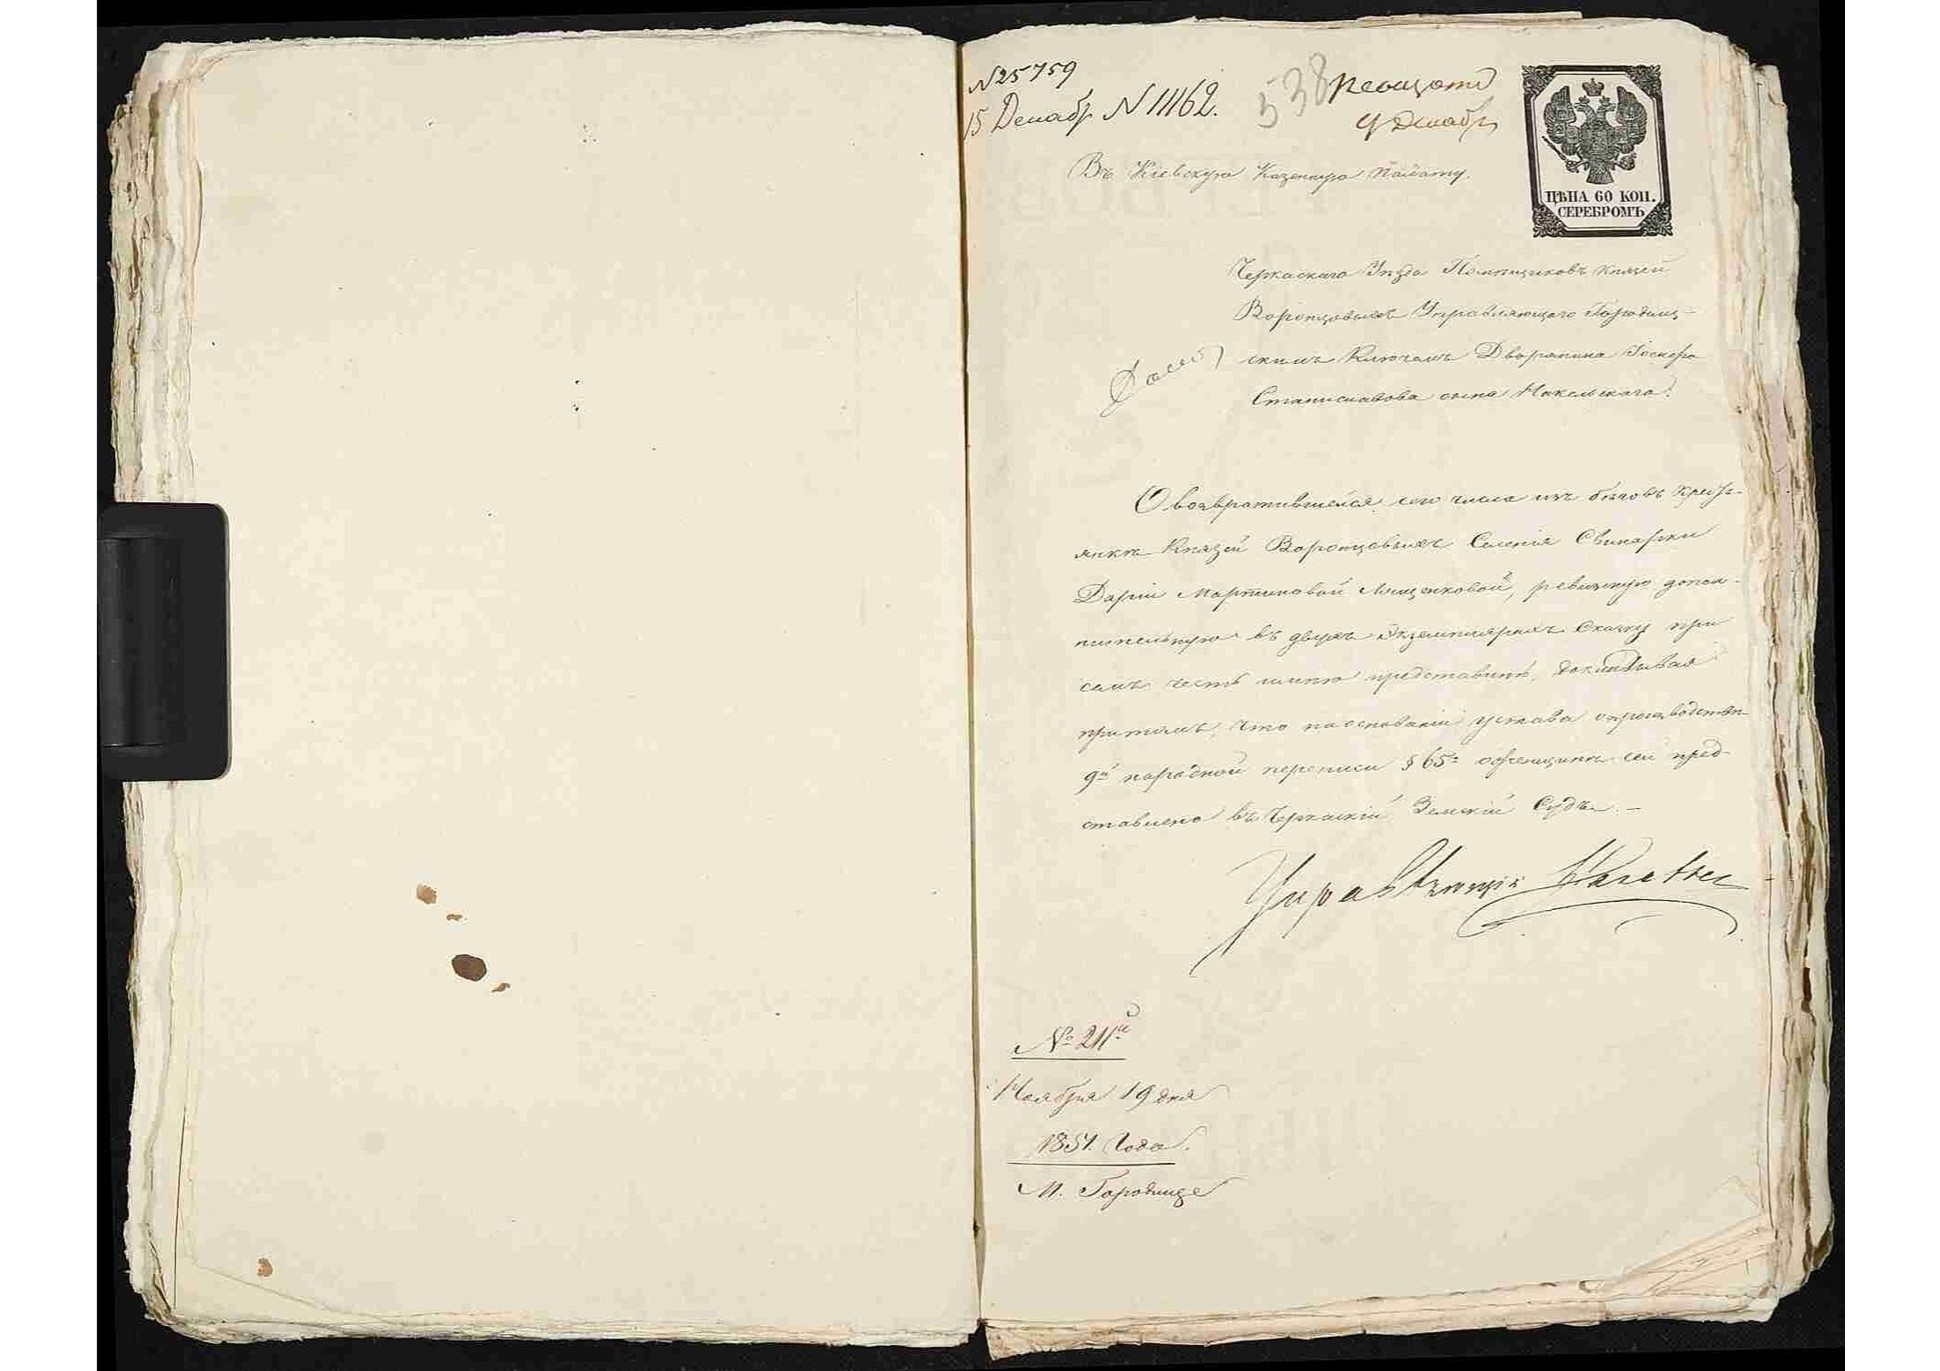 N 25759
15 Декабр N 11162.
538
9 Декабр
ЦѢНА 60 КОП.
СЕРЕБРОМЪ
Въ Кіевскую Казенную Палату.
Черкаскаго Уѣзда Помѣщиковъ Князей
Воронцовыхъ Управляющаго Городищ-
скимъ Ключемъ Дворянина
Станиславова сына
О возвратившейся сего числа изъ бѣговъ крестъ-
янкѣ Князей Воронцовыхъ Селенія Свинарки
Даріи Мартиновой Лященковой, ревизкую допол-
нительную въ двухъ Экземплярахъ Сказку при
семъ честь имѣю представить, докладывая
притомъ, что на основаніи устава о производствѣ
9й народной переписи § 65 о женщинѣ сей пред-
ставлено въ Черкаскій Земскій Судъ. –
Управляющій
№ 211
Ноября 19 дня
1851. Года.
М. Городище